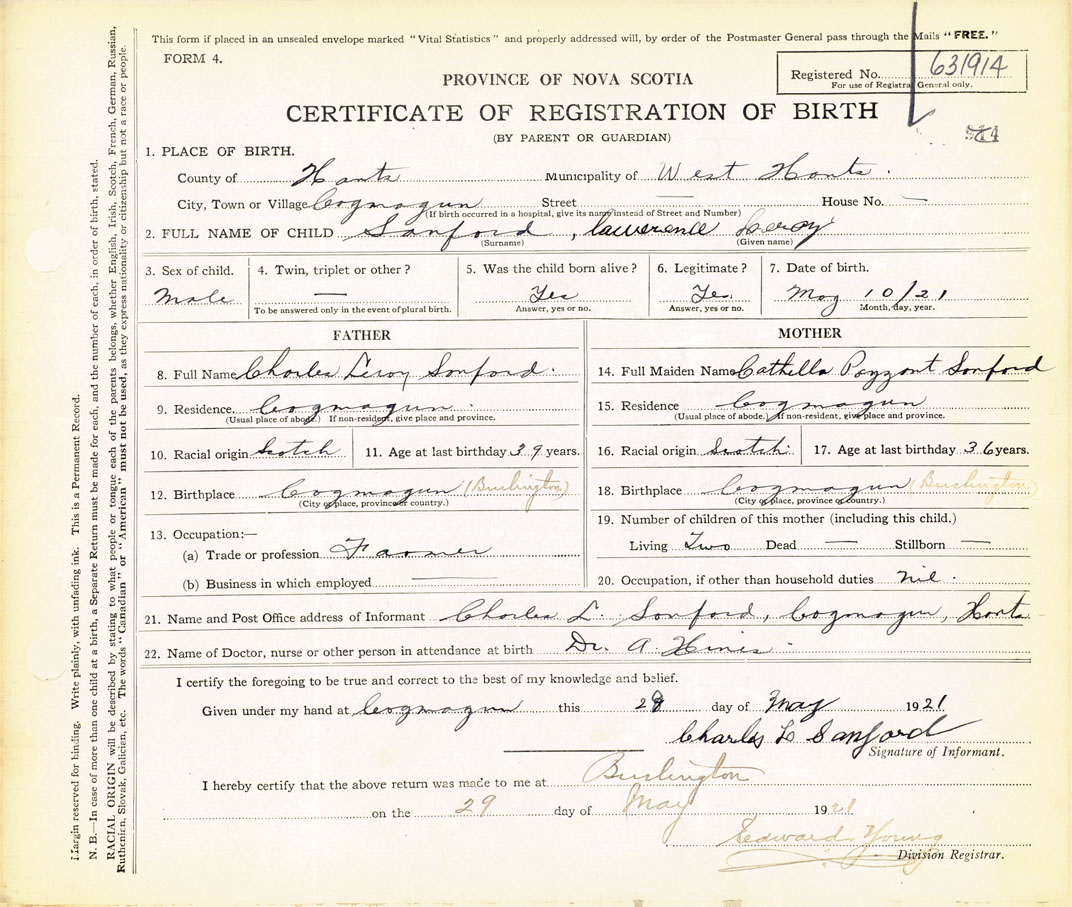 This form if placed in an unsealed envelope marked "Vital Statistics" and properly addressed will, by order of the Postmaster General pass through the Mails "FREE."
FORM 4.
Registered No. 631914
For use of Registrar General only.
PROVINCE OF NOVA SCOTIA
CERTIFICATE OF REGISTRATION OF BIRTH
(BY PARENT OR GUARDIAN)
1. PLACE OF BIRTH.
County of Hants Municipality of West Hants.
City, Town or Village Cogmagun Street — House No. —
(If birth occurred in a hospital, give its name instead of Street and Number)
2. FULL NAME OF CHILD Sanford, Lawerence Leroy
(Surname) (Given name)
3. Sex of child. 4. Twin, triplet or other? 5. Was the child born alive? 6. Legitimate? 7. Date of birth.
Male — Yes Yes. May 10/21
To be answered only in the event of plural birth. Answer, yes or no. Answer, yes or no. Month, day, year.
FATHER
8. Full Name Charles Leroy Sanford.
9. Residence. Cogmagun.
(Usual place of abode.) If non-resident, give place and province.
10. Racial origin Scotch 11. Age at last birthday 39 years.
12. Birthplace Cogmagun (Burlington)
(City or place, province or country.)
13. Occupation:—
(a) Trade or profession Farmer
(b) Business in which employed —
MOTHER
14. Full Maiden Name Cathella Payzant Sanford
15. Residence Cogmagun
(Usual place of abode.) If non-resident, give place and province.
16. Racial origin Scotch 17. Age at last birthday 36 years.
18. Birthplace Cogmagun (Burlington)
(City or place, province or country.)
19. Number of children of this mother (including this child.)
Living Two Dead — Stillborn —
20. Occupation, if other than household duties nil.
21. Name and Post Office address of Informant Charles L. Sanford, Cogmagun, Hants
22. Name of Doctor, nurse or other person in attendance at birth Dr. A. Hines
I certify the foregoing to be true and correct to the best of my knowledge and belief.
Given under my hand at Cogmagun this 28 day of May 1921
Charles L Sanford
Signature of Informant.
I hereby certify that the above return was made to me at Burlington
on the 29 day of May 1921
Edward Young
Division Registrar.
Margin reserved for binding. Write plainly, with unfading ink. This is a Permanent Record.
N. B.—In case of more than one child at a birth, a Separate Return must be made for each, and the number of each, in order of birth, stated.
RACIAL ORIGIN will be described by stating to what people or tongue each of the parents belongs, whether English, Irish, Scotch, French, German, Russian,
Ruthenian, Slovak, Galician, etc. The words "Canadian" or "American" must not be used, as they express nationality or citizenship but not a race or people.